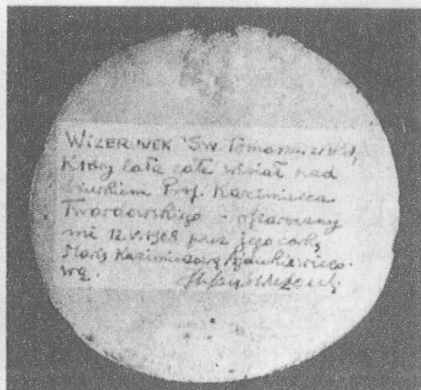 WIZERUNEK Św. Tomasza
który całe lata wisiał nad
biurkiem Prof. Kazimierza
Twardowskiego - ofiarowany
mi 12.V.1968 przez jego córkę
Marię Kazimierzową Ajdukiewiczo-
wą.